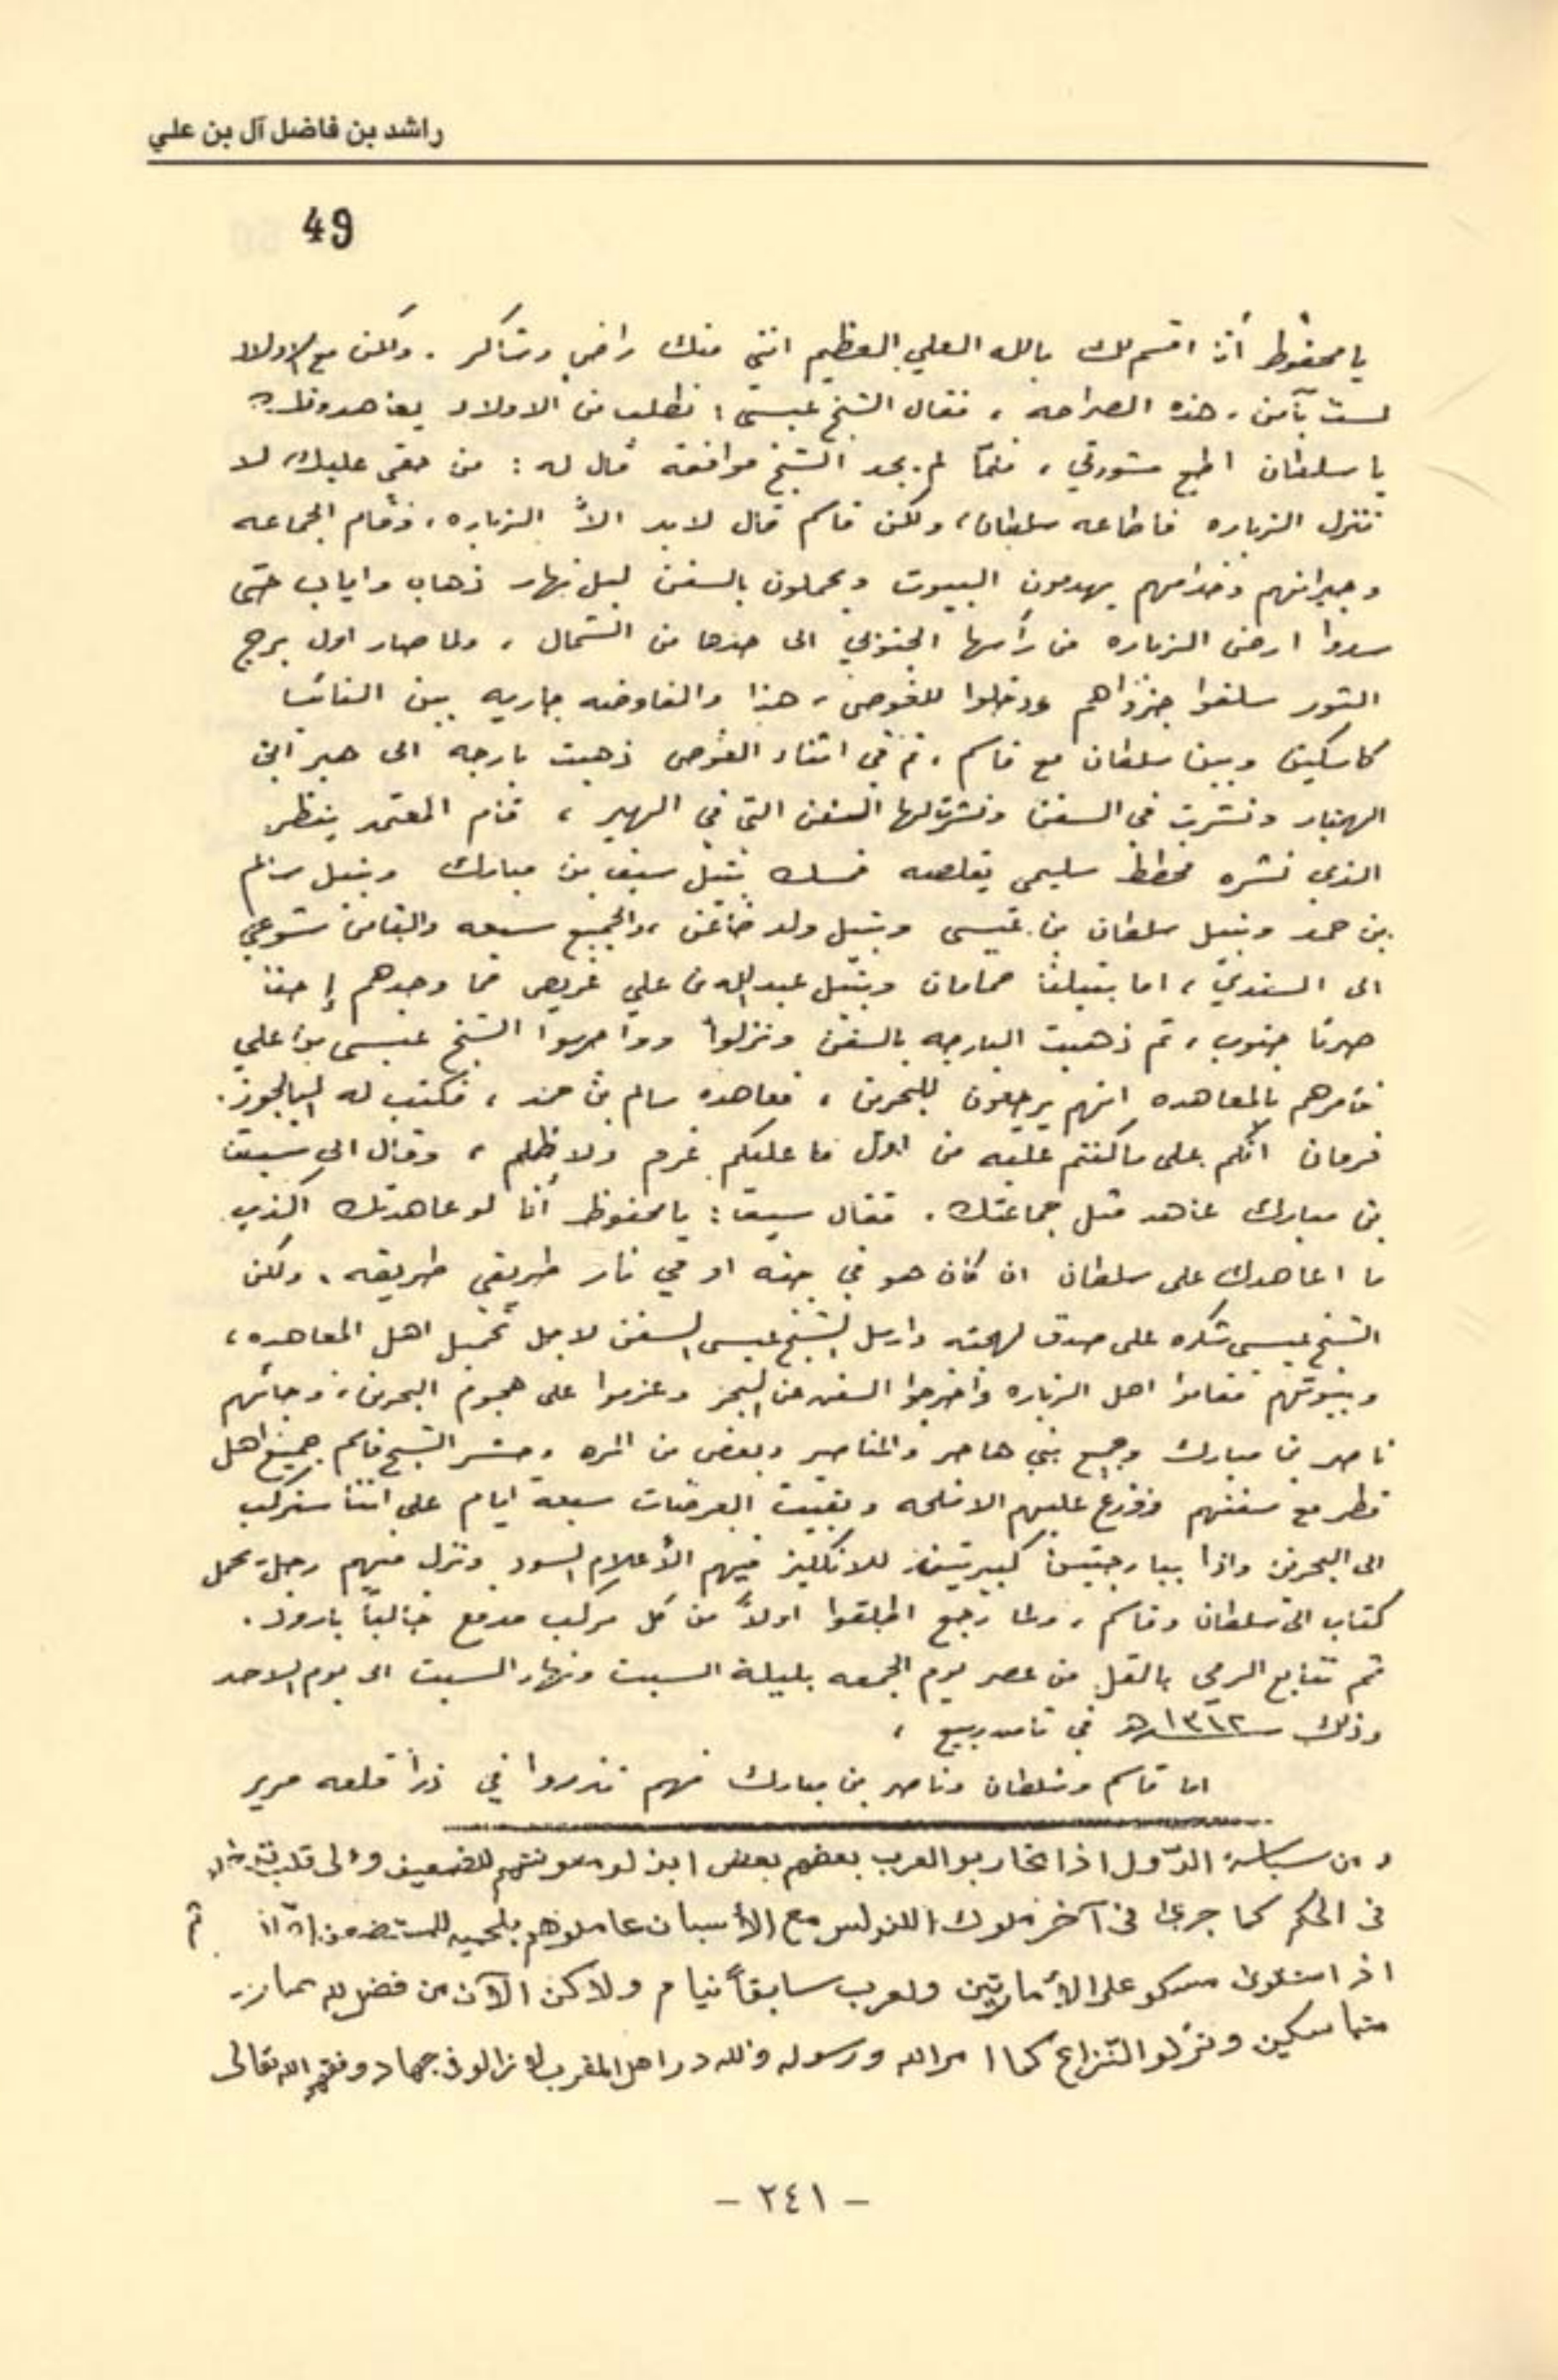 راشد بن فاضل آل بن علي
49
يا محفوظ أنا اقسم لك بالله العلي العظيم انني منك راضي وشاكر . ولكن مع الاولاد
لست بآمن ، هذه الصراحه ، فقال الشيخ عيسى : نطلب من الاولاد يعاهدونك
يا سلطان اطع مشورتي ، فلمّا لم يجد الشيخ موافقة قال له : من حقي عليك لا
تنزل الزباره فاطاعه سلطان ، ولكن قاسم قال لابد الاّ الزباره ، وقام الجماعه
وجيرانهم وخدامهم يهدمون البيوت ويحملون بالسفن ليل نهار ذهاب واياب حتى
سدوا ارض الزباره من رأسها الجنوبي الى حدها من الشمال ، ولما صار اول برج
الثور سلفوا جزواهم ودخلوا للغوص ، هذا والمفاوضه جاريه بين
كاسكين وبين سلطان مع قاسم ، ثم في اثناء الغوص ذهبت بارجه الى هير ابن
الهنبار ونشرت في السفن ونشرت لها السفن التي في الهير ، قام المعتمد ينظر
الذي نشره مخطط سليمي يقلصه فمسك بتيل سيف بن مبارك وبتيل سالم
بن حمد وبتيل سلطان بن عيسى وبتيل ولد ، والجميع سبعه والثامن شوعي
الى السندي ، اما بتيلنا حمامان وبتيل عبدالله بن علي غريص فما وجدهم إحنا
صرنا جنوب ، ثم ذهبت البارجه بالسفن ونزلوا وواجهوا الشيخ عيسى بن علي
فأمرهم بالمعاهده انهم يرجعون للبحرين ، فعاهده سالم بن حمد ، فكتب له
فرمان انكم على ما كنتم عليه من اول ما عليكم غرم ولا ظلم ، وقال الى سيف
بن مبارك عاهد مثل جماعتك . فقال سيف : يا محفوظ أنا لو عاهدتك اكذب
ما اعاهدك على سلطان ان كان هو في جنه او في نار طريقي طريقه ، ولكن
الشيخ عيسى شكره على صدق لهجته وارسل الشيخ عيسى السفن لاجل تحميل اهل المعاهده ،
وبيوتهم فقاموا اهل الزباره واخرجوا السفن من البحر وعزموا على هجوم البحرين ، وجائهم
ناصر بن مبارك وجميع بني هاجر والمناصير وبعض من المره وحشر الشيخ قاسم جميع اهل
قطر مع سفنهم ووزع عليهم الاسلحه وبقيت العرضات سبعة ايام على اننا سنركب
الى البحرين واذا ببارجتين كبيرتين للانكليز فيهم الأعلام السود ونزل منهم رجل يحمل
كتاب الى سلطان وقاسم ، ولما رجع اطلقوا اولاً من كل مركب مدفع خالياً بارود .
ثم تتابع الرمي بالقلل من عصر يوم الجمعه بليلة السبت ونهار السبت الى يوم الاحد
وذلك سنة ١٣١٢هـ في ثامن ربيع ،
اما قاسم وسلطان وناصر بن مبارك فهم تذروا في ذرا قلعه مرير
ومن سياسة الدّول اذا تحاربو العرب بعضهم بعض ابذلو معونتهم للضعيف
في الحكم كما جرى في آخر ملوك الاندلس مع الأسبان عاملوهم
اذا استلوى مسكو على الأمارتين ولعرب سابقاً نيام ولاكن الآن من فضل لله
متماسكين وتركو النّزاع كما امر الله ورسوله ولله در اهل المغرب لا زالو في جهاد وفقهم الله تعالى
- ٢٤١ -